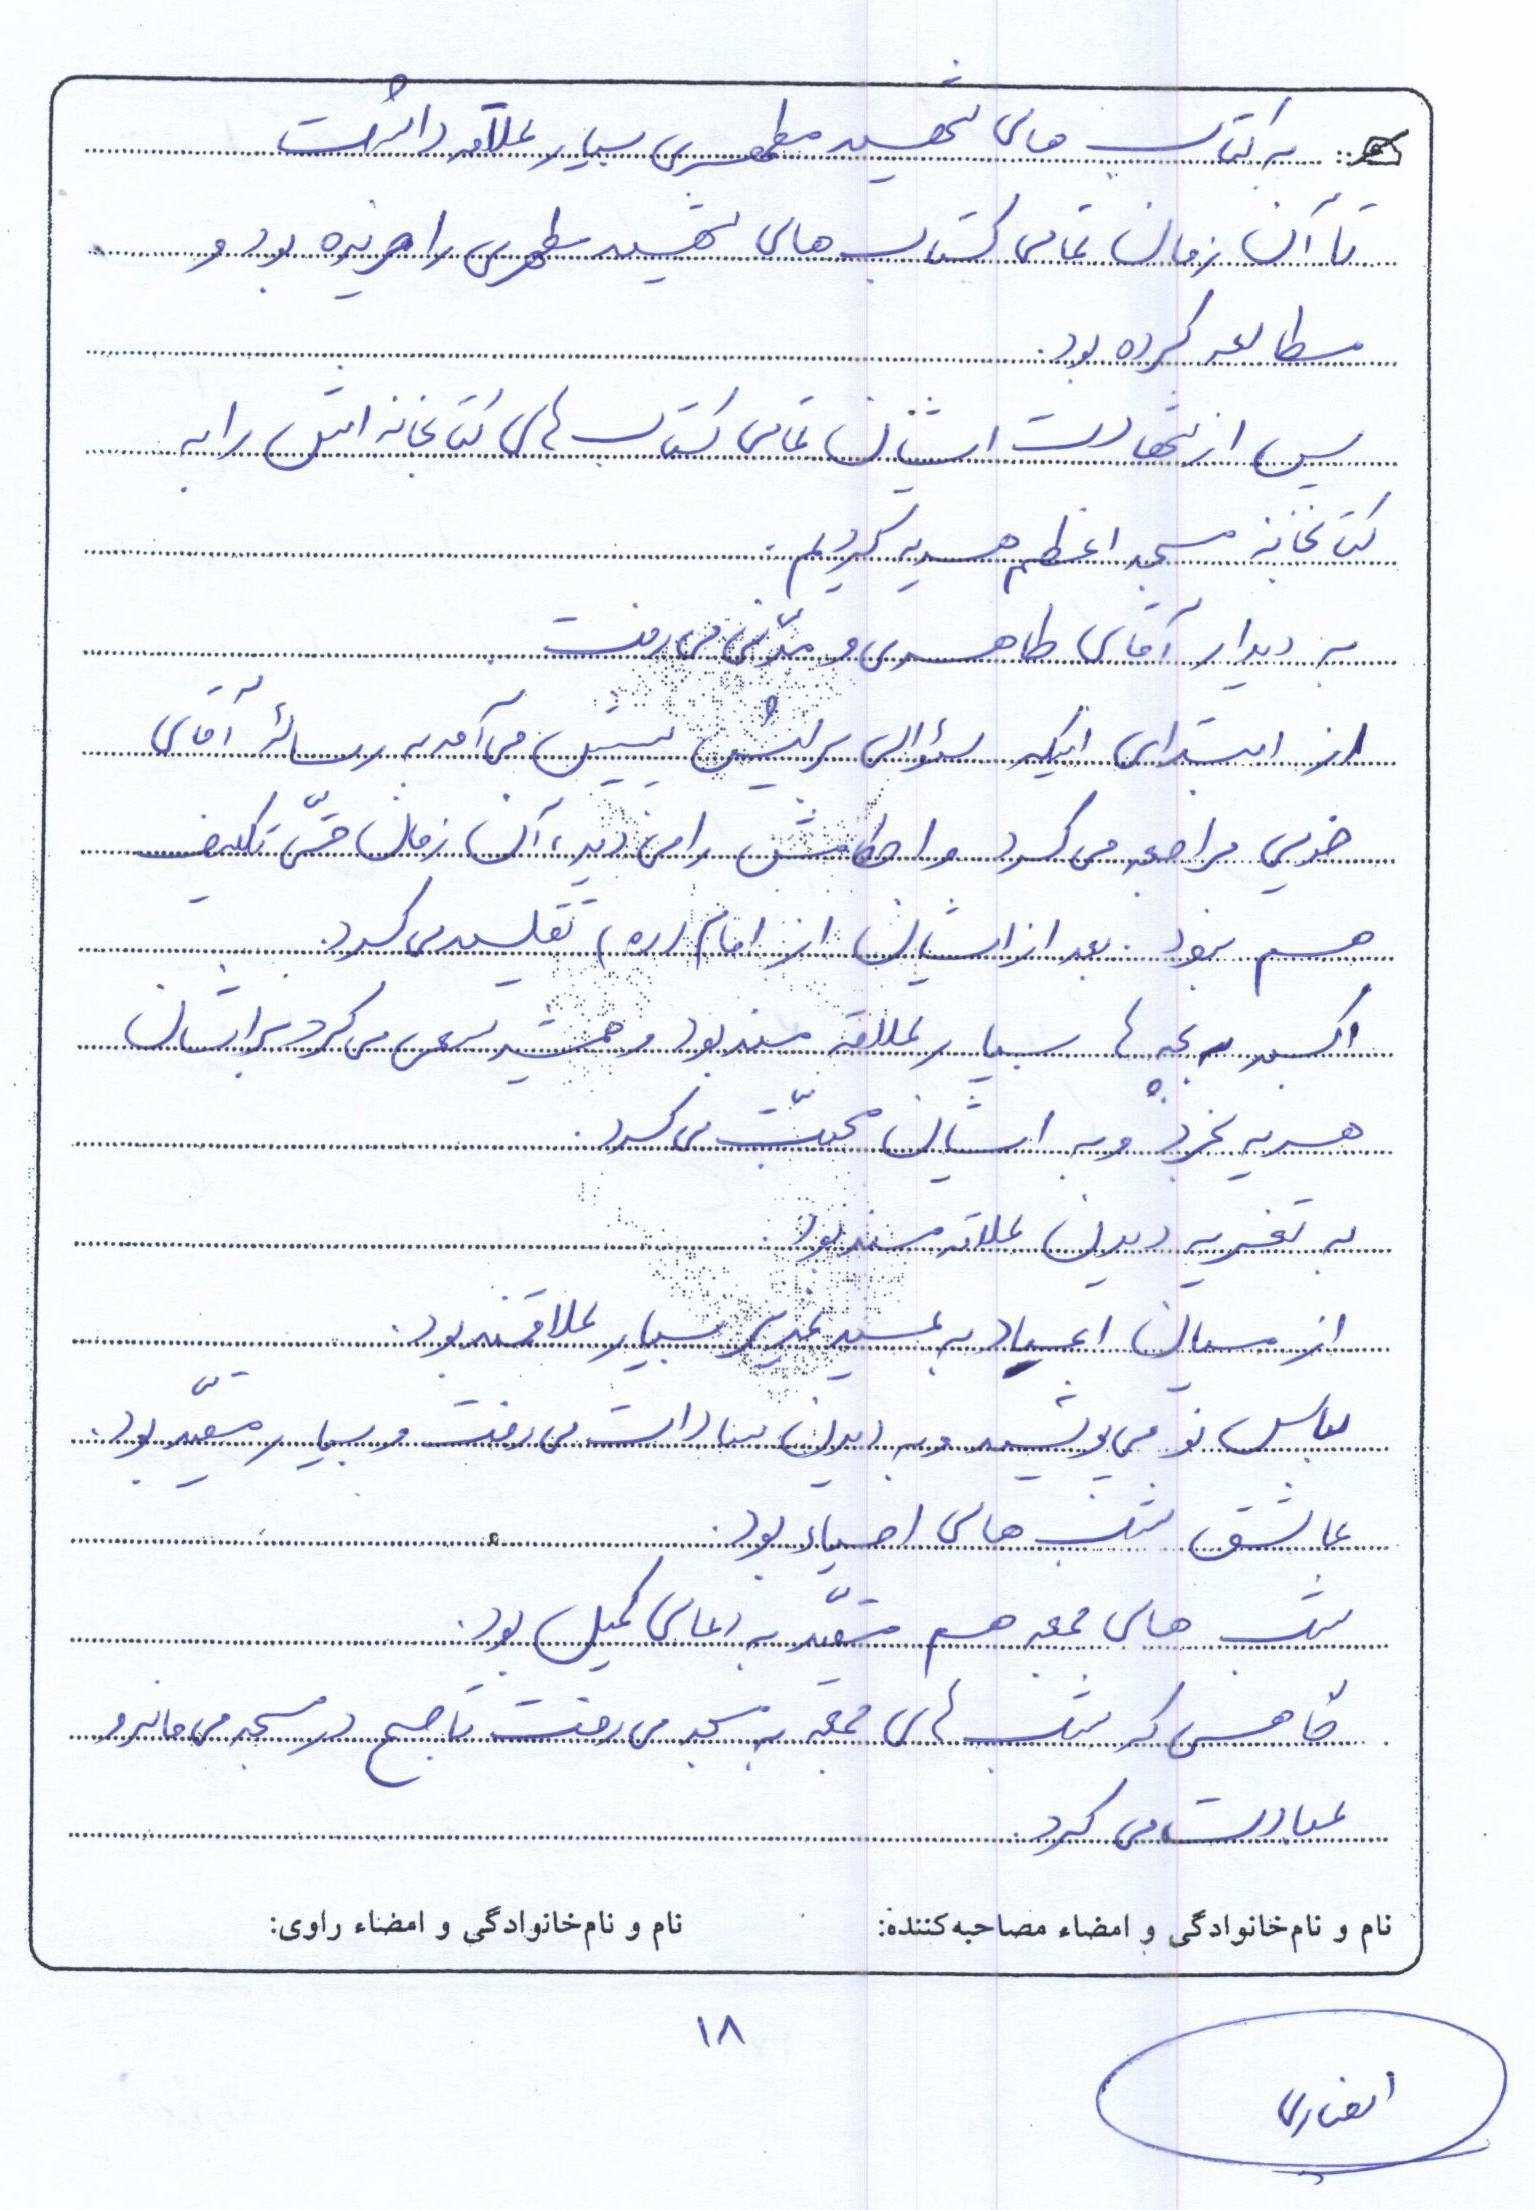 به کتاب های شهید مطهری بسیار علاقه داشت
تا آن زمان تمامی کتاب های شهید مطهری را خریده بود و
مطالعه کرده بود.
پس از شهادت ایشان تمامی کتاب های کتابخانه اش را به
کتابخانه مسجد اعظم هدیه کردیم.
به دیدار آقای طاهری و مدنی می رفت.
از ابتدای اینکه سؤالی برایش پیش می آمد به رسالهٔ آقای
خویی مراجعه می کرد و احکامش را می دید، آن زمان حتّی تکلیف
هم نبود. بعد از ایشان از امام (ره) تقلید می کرد.
اکبر به بچه ها بسیار علاقه مند بود و همیشه سعی می کرد برایشان
هدیه بخرد و به ایشان محبّت می کرد.
به تعزیه دیدن علاقه مند بود.
از میان اعیاد به عید غدیر بسیار علاقمند بود.
لباس نو می پوشید و به دیدن سادات می رفت و بسیار مقیّد بود.
عاشق شب های احیاء بود.
شب های جمعه هم مقیّد به دعای کمیل بود.
گاهی که شب های جمعه به مسجد می رفت تا صبح در مسجد می ماند و
عبادت می کرد.
نام و نام‌خانوادگی و امضاء مصاحبه‌کننده: نام و نام‌خانوادگی و امضاء راوی:
۱۸
انصاری